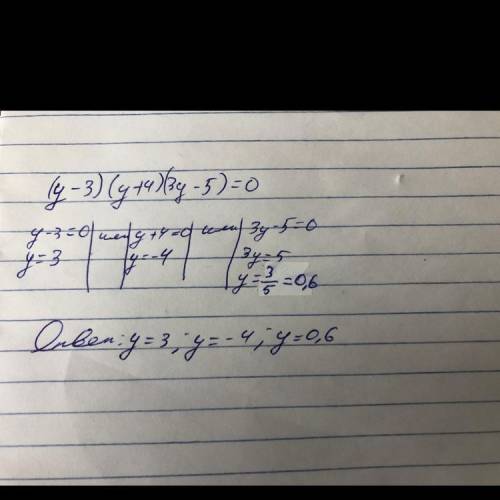 (y-3)(y+4)(3y-5)=0
y-3=0 | или | y+4=0 | или | 3y-5=0
y=3 | | y=-4 | | 3y=5
y=3/5=0,6
Ответ: y=3; y=-4; y=0,6